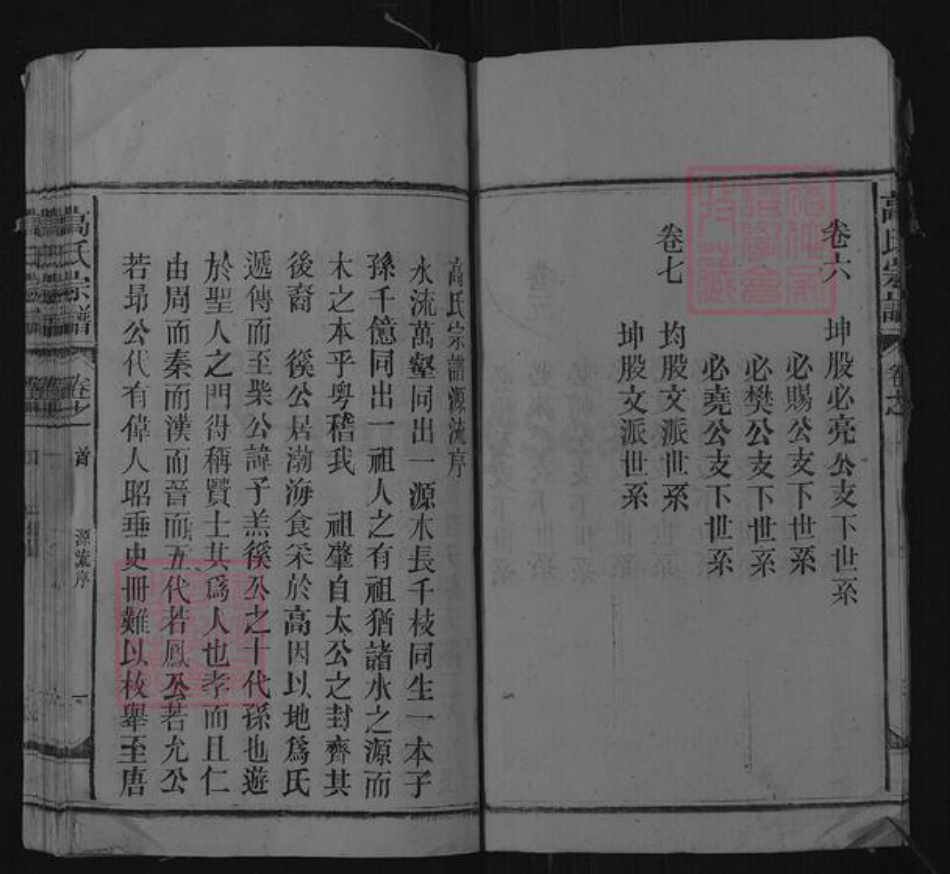 高氏宗譜
卷六
坤股必亮公支下世系
必賜公支下世系
必樊公支下世系
必堯公支下世系
卷七
均股文派世系
坤股文派世系
高氏宗譜源流序
水流萬壑同出一源木長千枝同生一本子
孫千億同出一祖人之有祖猶諸水之源而
木之本乎粤稽我 祖肇自太公之封齊其
後裔 徯公居渤海食采於高因以地爲氏
遞傳而至柴公諱子羔徯公之十代孫也遊
於聖人之門得稱賢士其爲人也孝而且仁
由周而秦而漢而晉而五代若鳳公若允公
若昻公代有偉人昭垂史冊難以枚舉至唐
高氏宗譜
卷之
首
源流序
一